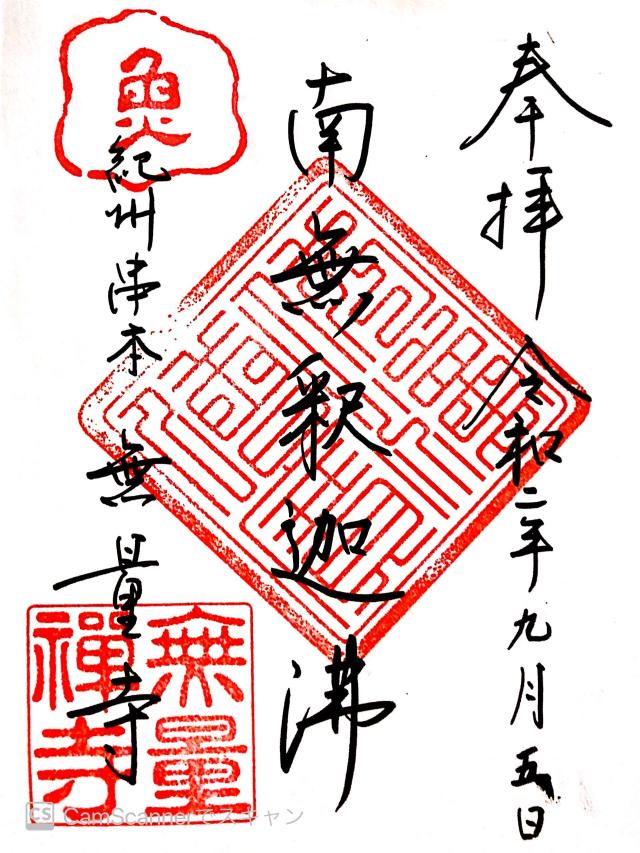 奉拝 令和二年九月五日
南無釈迦佛
魚
紀州串本 無量寺
無量
禪寺
CS CamScannerでスキャン